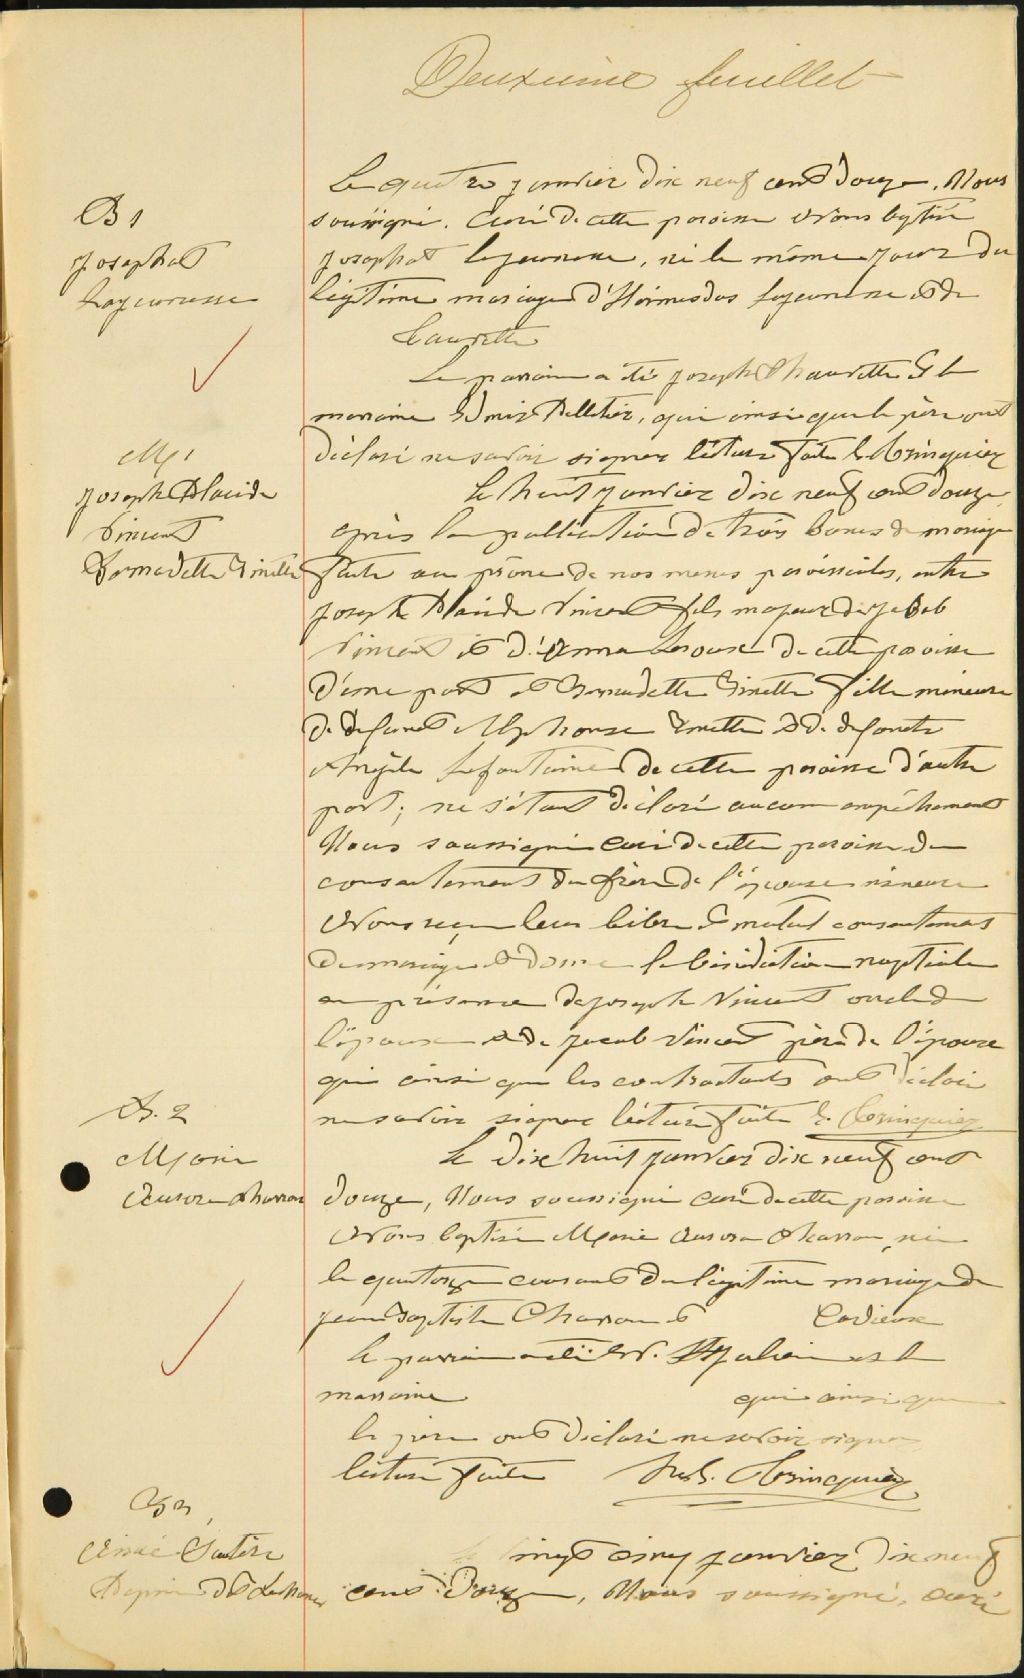 Deuxième feuillet
B 1
Josephat
Lajeunesse
Le quatre janvier dix neuf cent douze, Nous
soussigné, curé de cette paroisse avons baptisé
Josephat Lajeunesse, né le même jour du
légitime mariage d'Hormisdas Lajeunesse et de
Chaurette
Le parrain a été Joseph Chaurette et la
marraine Pelletier, qui ainsi que le père ont
déclaré ne savoir signer lecture faite
M 1
Joseph Placide
Vincent
Bernadette Finette
Le huit janvier dix neuf cent douze,
après la publication de trois bancs de mariage
faite au prône de nos messes paroissiales, entre
Joseph Placide Vincent fils majeur de Jacob
Vincent et d'Emma de cette paroisse
d'une part et Bernadette Finette fille mineure
de defunt Alphonse et de defunte
Lafontaine de cette paroisse d'autre
part; ne s'étant déclaré aucun empêchement
Nous soussigné curé de cette paroisse du
consentement du frère de l'épouse mineure
avons reçu leur libre et mutuel consentement
de mariage et donné la bénédiction nuptiale
en présence de Joseph Vincent oncle de
l'époux et de Jacob Vincent père de l'époux
qui ainsi que les contractants ont déclaré
ne savoir signer lecture faite
B. 2
Marie
Aurore Charron
Le dix huit janvier dix neuf cent
douze, Nous soussigné curé de cette paroisse
avons baptisé Marie Aurore Charron, née
le quatorze courant du légitime mariage de
Jean Baptiste Charron et Cadieux
le parrain a été St Julien et la
marraine qui ainsi que
le père ont déclaré ne savoir signer
lecture faite
B 3
Aimé
Le vingt cinq janvier dix neuf
cent douze, Nous soussigné, curé